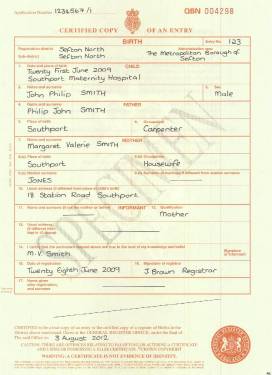 Application Number 1234567/1
QBN 004298
CERTIFIED COPY OF AN ENTRY
BIRTH
Entry No. 123
Registration district Sefton North
Sub-district Sefton North
Administrative area
The Metropolitan Borough of Sefton
1. Date and place of birth CHILD
Twenty First June 2009
Southport Maternity Hospital
2. Name and surname
John Philip SMITH
3. Sex
Male
4. Name and surname FATHER
Philip John SMITH
5. Place of birth
Southport
6. Occupation
Carpenter
7. Name and surname MOTHER
Margaret Valerie SMITH
8. Place of birth
Southport
Occupation
Housewife
9.(a) Maiden surname
JONES
10. Usual address (if different from place of child's birth)
18 Station Road Southport
11. Name and surname (if not the mother or father) INFORMANT
12. Qualification
Mother
13. Usual address
14. I certify that the particulars entered above are true to the best of my knowledge and belief
M.V. Smith
Signature of informant
15. Date of registration
Twenty Eighth June 2009
16. Signature of registrar
J Brown Registrar
17. Name given after registration, and surname
SPECIMEN
CERTIFIED to be a true copy of an entry in the certified copy of a register of Births in the
District above mentioned. Given at the GENERAL REGISTER OFFICE, under the Seal of
the said Office on 3 August 2012
WARNING: A CERTIFICATE IS NOT EVIDENCE OF IDENTITY.